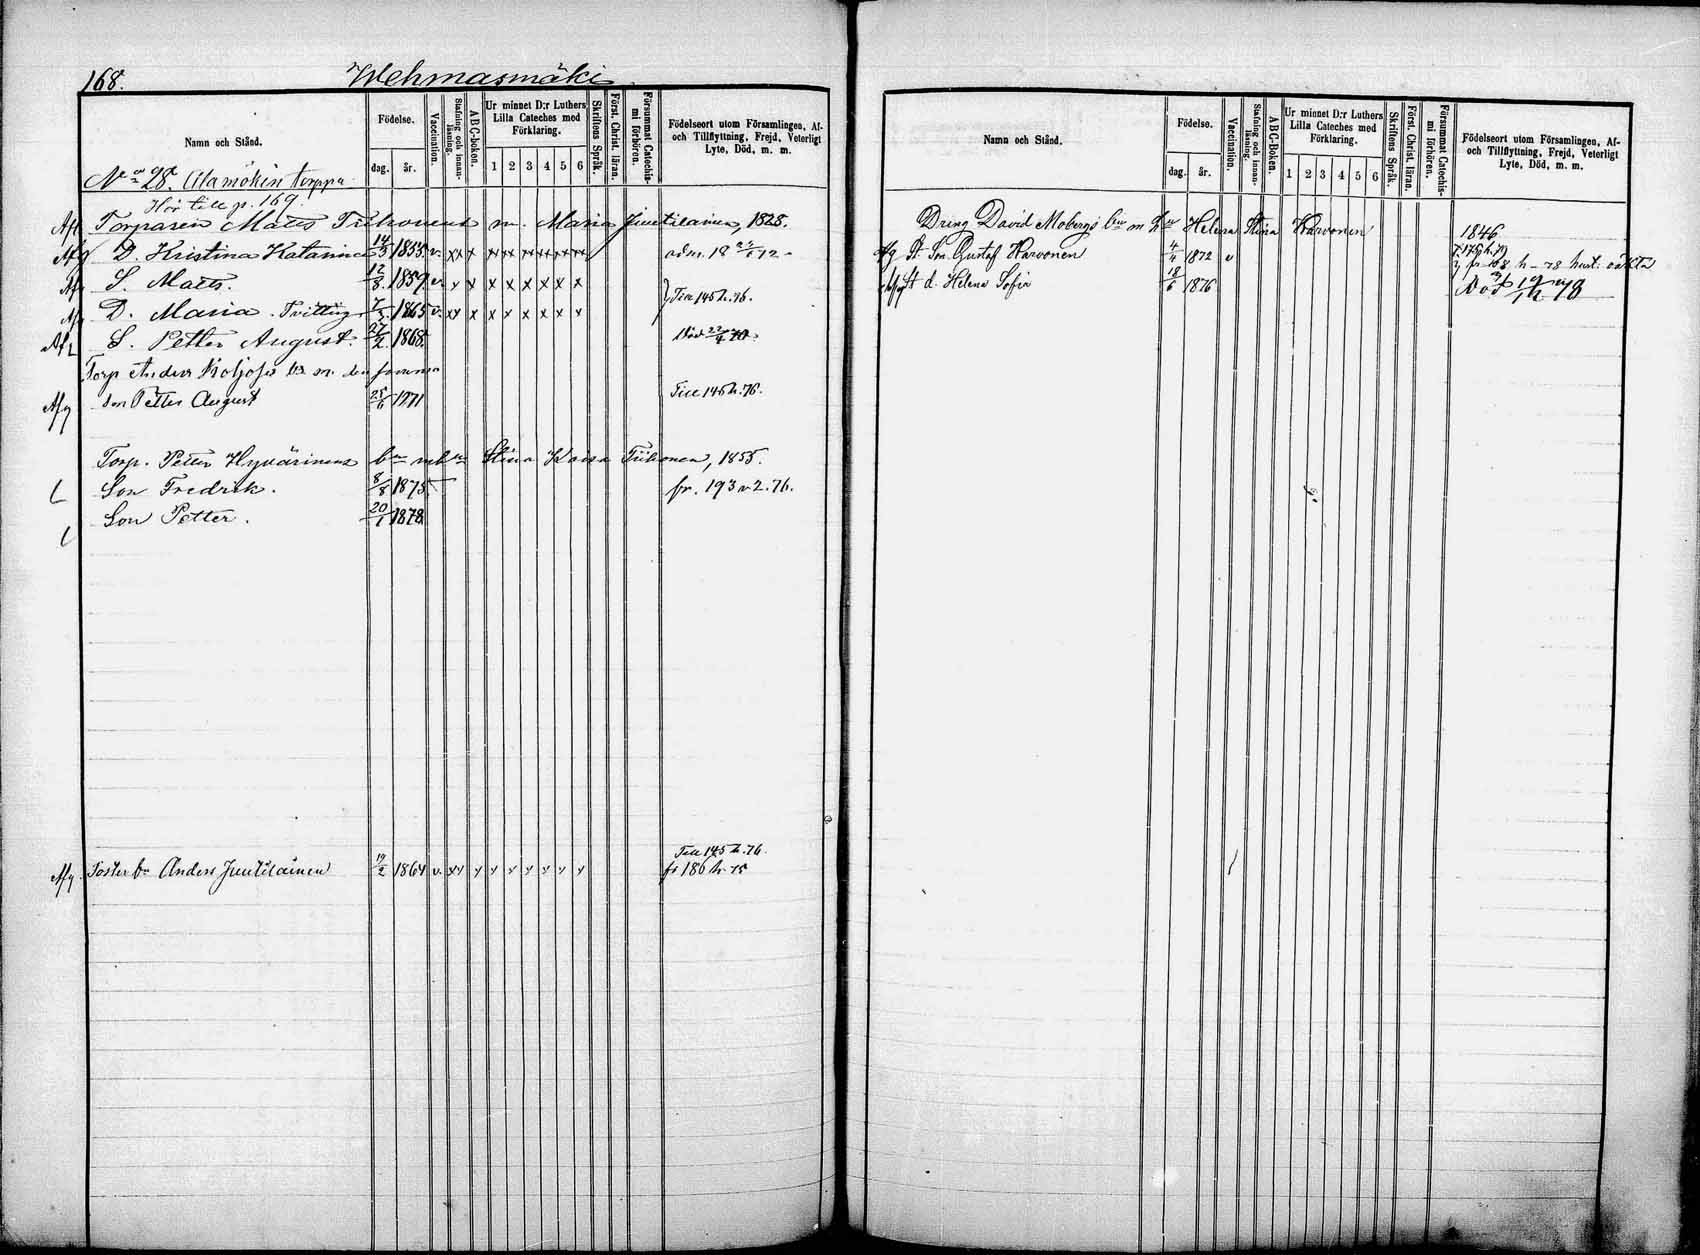 168.
Wehmasmäki
Namn och Stånd.
Födelse.
dag.
år.
Vaccination.
Stafning och innanläsning.
ABC-boken.
Ur minnet D:r Luthers
Lilla Cateches med
Förklaring.
1 2 3 4 5 6
Skriftens Språk.
Först. Christ. läran.
Försummat Catechismi förhören.
Födelseort utom Församlingen, Af-
och Tillflyttning, Frejd, Veterligt
Lyte, Död, m. m.
No 28. torppa
Hör till p. 169.
Torparen Matts m. Maria Juutilainen, 1828.
Afg D. Kristina Katarina 14/3 1855. v. xx x x xx x xx xx xx adm. 18 72
S. Matts. 12/8. 1859. v. x x x x x x x x
D. Maria. 7/3. 1865 v. xx x x x x x x x Till 145 h. 76.
S. Petter August. 27/2. 1868. Död 22/4 70
Torp Anders m. den
Afg Son Petter August 25/6 1871 Till 145 h. 76.
Torp. Petter Hyvärinens bn m hu Stina Kaisa Tiihonen, 1855.
Son Fredrik. 8/8 1875. fr. 193 v 2. 76.
Son Petter. 20/1 1878
Till 145 h. 76.
Afg. Foster bn Anders Juutilainen 19/2 1864 v. xx x x x x x x x fr 186 h. 75
Namn och Stånd.
Födelse.
dag.
år.
Vaccination.
Stafning och innanläsning.
ABC-boken.
Ur minnet D:r Luthers
Lilla Cateches med
Förklaring.
1 2 3 4 5 6
Skriftens Språk.
Först. Christ. läran.
Försummat Catechismi förhören.
Födelseort utom Församlingen, Af-
och Tillflyttning, Frejd, Veterligt
Lyte, Död, m. m.
Dräng David Mobergs bn m hu Helena Stina Karvonen 1846
afg St. Son Gustaf Karvonen 4/4 1872 v
St d. Helena Sofia 18/6 1876 Död 78